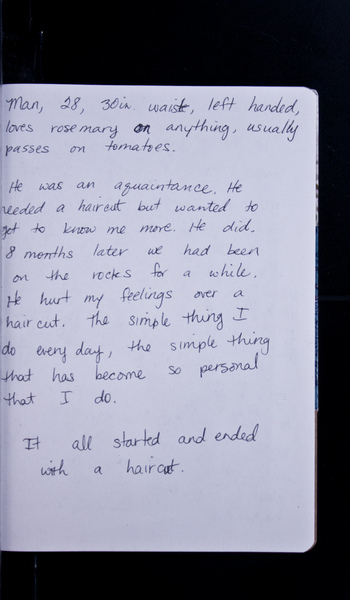 Man, 28, 30in. waist, left handed,
loves rosemary on anything, usually
passes on tomatoes.
He was an aquaintance. He
needed a haircut but wanted to
get to know me more. He did.
8 months later we had been
on the rocks for a while.
He hurt my feelings over a
haircut. The simple thing I
do every day, the simple thing
that has become so personal
that I do.
It all started and ended
with a haircut.